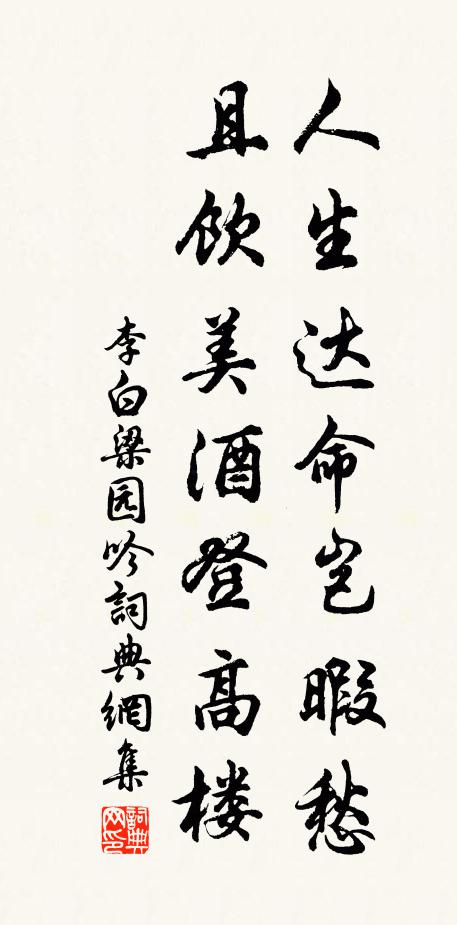 人生达命岂暇愁
且饮美酒登高楼
李白梁园吟詞典網集
詞典网印